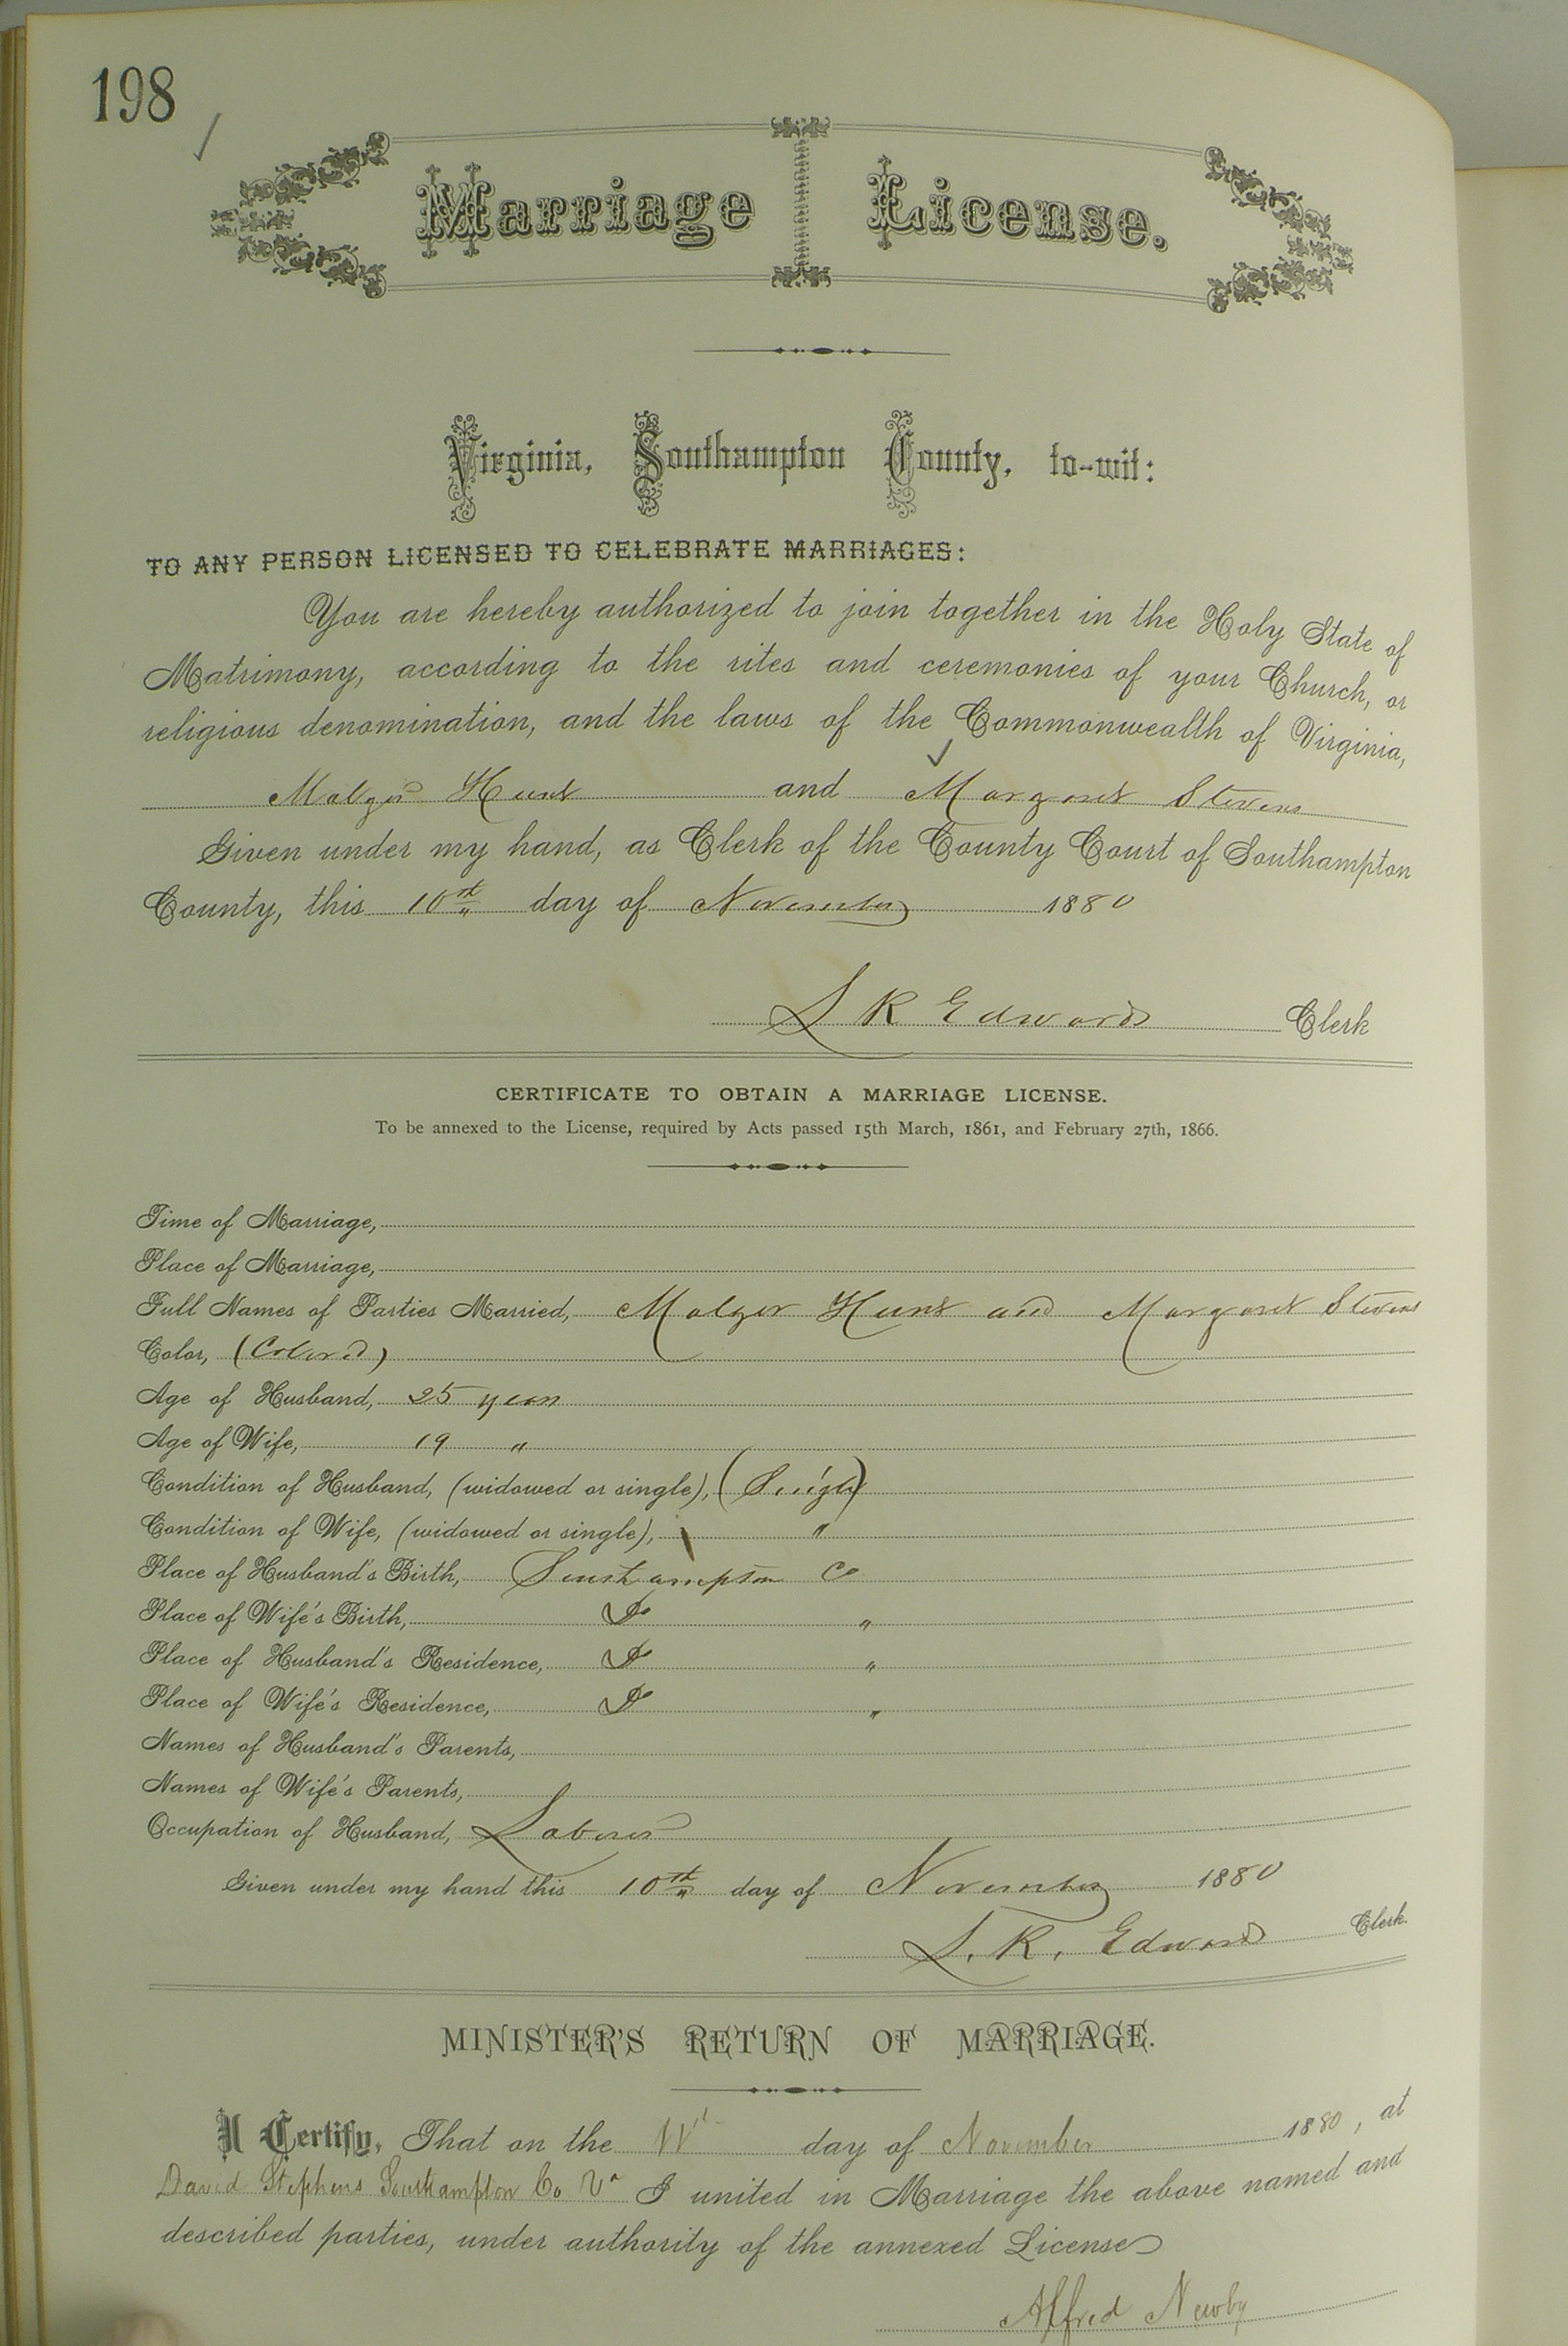 198
Marriage License.
Virginia, Southampton County, to-wit:
TO ANY PERSON LICENSED TO CELEBRATE MARRIAGES:
You are hereby authorized to join together in the Holy State of
Matrimony, according to the rites and ceremonies of your Church, or
religious denomination, and the laws of the Commonwealth of Virginia,
Hunt and Margaret Stevens
Given under my hand, as Clerk of the County Court of Southampton
County, this 10th day of November 1880
L R Edwards Clerk
CERTIFICATE TO OBTAIN A MARRIAGE LICENSE.
To be annexed to the License, required by Acts passed 15th March, 1861, and February 27th, 1866.
Time of Marriage,
Place of Marriage,
Full Names of Parties Married, Hunt and Margaret Stevens
Color, (Colored)
Age of Husband, 25 years
Age of Wife, 19 "
Condition of Husband, (widowed or single), (Single)
Condition of Wife, (widowed or single), "
Place of Husband's Birth, Southampton Co
Place of Wife's Birth, Do "
Place of Husband's Residence, Do "
Place of Wife's Residence, Do "
Names of Husband's Parents,
Names of Wife's Parents,
Occupation of Husband, Laborer
Given under my hand this 10th day of November 1880
L. R. Edwards Clerk.
MINISTER'S RETURN OF MARRIAGE.
I Certify, That on the day of November 1880, at
David Stephens Southampton Co Va I united in Marriage the above named and
described parties, under authority of the annexed License
Alfred Newby